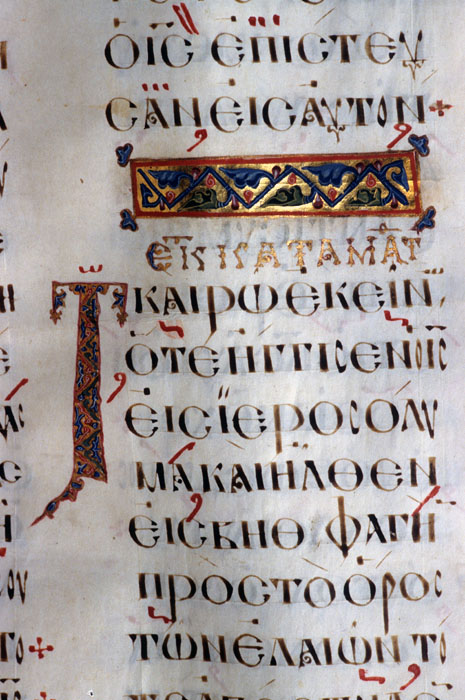 ΟΙϹ ΕΠΙϹΤΕΥ
ϹΑΝ ΕΙϹ ΑΥΤΟΝ +
ΚΑΤΑ ΜΑΤ
Τ ΚΑΙΡΩ ΕΚΕΙΝ
ΟΤΕ ΗΓΓΙϹΕΝ Ο ΙϹ
ΕΙϹ ΪΕΡΟϹΟΛΥ
ΜΑ ΚΑΙ ΗΛΘΕΝ
ΕΙϹ ΒΗΘΦΑΓΗ
ΠΡΟϹ ΤΟ ΟΡΟϹ
ΤΩΝ ΕΛΑΙΩΝ ΤΟ